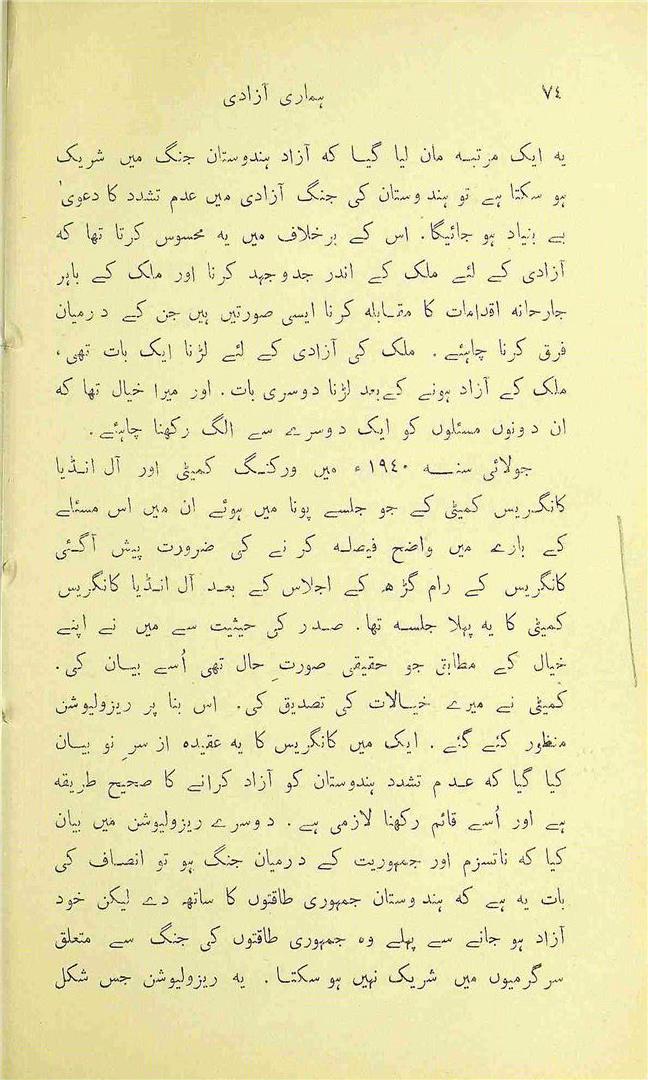 ٧٤
ہماری آزادی
یہ ایک مرتبہ مان لیا گیا کہ آزاد ہندوستان جنگ میں شریک
ہو سکتا ہے تو ہندوستان کی جنگ آزادی میں عدم تشدد کا دعویٰ
بے بنیاد ہو جائیگا. اس کے برخلاف میں یہ محسوس کرتا تھا کہ
آزادی کے لئے ملک کے اندر جدوجہد کرنا اور ملک کے باہر
جارحانہ اقدامات کا مقابلہ کرنا ایسی صورتیں ہیں جن کے درمیان
فرق کرنا چاہئے. ملک کی آزادی کے لئے لڑنا ایک بات تھی،
ملک کے آزاد ہونے کےبعد لڑنا دوسری بات. اور میرا خیال تھا کہ
ان دونوں مسئلوں کو ایک دوسرے سے الگ رکھنا چاہئے.
جولائی سنہ ١٩٤٠ء میں ورکنگ کمیٹی اور آل انڈیا
کانگریس کمیٹی کے جو جلسے پونا میں ہوئے ان میں اس مسئلے
کے بارے میں واضح فیصلہ کرنے کی ضرورت پیش آگئی
کانگریس کے رام گڑھ کے اجلاس کے بعد آل انڈیا کانگریس
کمیٹی کا یہ پہلا جلسہ تھا. صدر کی حیثیت سے میں نے اپنے
خیال کے مطابق جو حقیقی صورتِ حال تھی اُسے بیان کی.
کمیٹی نے میرے خیالات کی تصدیق کی. اس بنا پر ریزولیوشن
منظور کئے گئے. ایک میں کانگریس کا یہ عقیدہ از سرِ نو بیان
کیا گیا کہ عدم تشدد ہندوستان کو آزاد کرانے کا صحیح طریقہ
ہے اور اُسے قائم رکھنا لازمی ہے. دوسرے ریزولیوشن میں بیان
کیا کہ ناتسزم اور جمہوریت کے درمیان جنگ ہو تو انصاف کی
بات یہ ہے کہ ہندوستان جمہوری طاقتوں کا ساتھ دے لیکن خود
آزاد ہو جانے سے پہلے وہ جمہوری طاقتوں کی جنگ سے متعلق
سرگرمیوں میں شریک نہیں ہو سکتا. یہ ریزولیوشن جس شکل